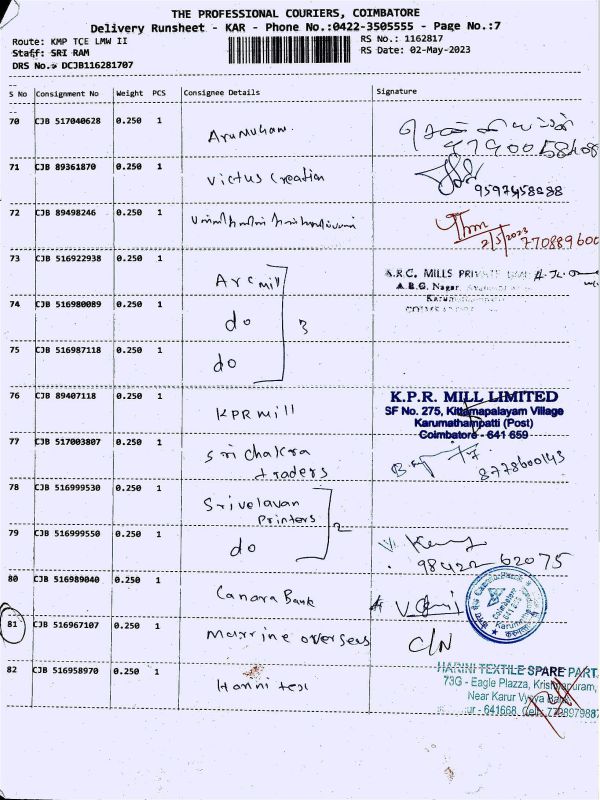 THE PROFESSIONAL COURIERS, COIMBATORE
Delivery Runsheet - KAR - Phone No.:0422-3505555 - Page No.:7
Route: KMP TCE LMW II
RS No.: 1162817
Staff: SRI RAM
RS Date: 02-May-2023
DRS No.: DCJB116281707
S No Consignment No Weight PCS Consignee Details Signature
70 CJB 517040628 0.250 1 Arumuham
71 CJB 89361870 0.250 1 Victus Creation
9597458888
72 CJB 89498246 0.250 1
2/5/2023 770889600
73 CJB 516922938 0.250 1 Arc mill
A.R.C. MILLS PRIVATE
A.B.G. Nagar,
74 CJB 516980089 0.250 1 do 3
75 CJB 516987118 0.250 1 do
76 CJB 89407118 0.250 1 KPR mill
K.P.R. MILL LIMITED
SF No. 275, Kittampalayam Village
Karumathampatti (Post)
Coimbatore - 641 659
77 CJB 517003807 0.250 1 Sri chakra
traders
8778600143
78 CJB 516999530 0.250 1 Srivelavan
Printers
79 CJB 516999550 0.250 1 do 2
98422 62075
80 CJB 516989040 0.250 1 Canara Bank
81 CJB 516967107 0.250 1 Marrine overseas C/N
82 CJB 516958970 0.250 1 Harini tex
HARINI TEXTILE SPARE PART
73G - Eagle Plazza, Krishnapuram,
Near Karur Vysya Bank
641668. Cell: